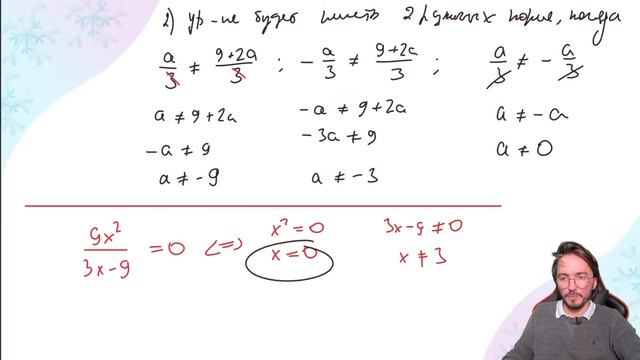 2) ур-ие будет иметь 2 разных корня, когда
a/3 ≠ (9+2a)/3 ; -a/3 ≠ (9+2a)/3 ; a/3 ≠ -a/3
a ≠ 9+2a -a ≠ 9+2a a ≠ -a
-a ≠ 9 -3a ≠ 9 a ≠ 0
a ≠ -9 a ≠ -3
9x²/(3x-9) = 0 <=> x² = 0 3x-9 ≠ 0
x = 0 x ≠ 3